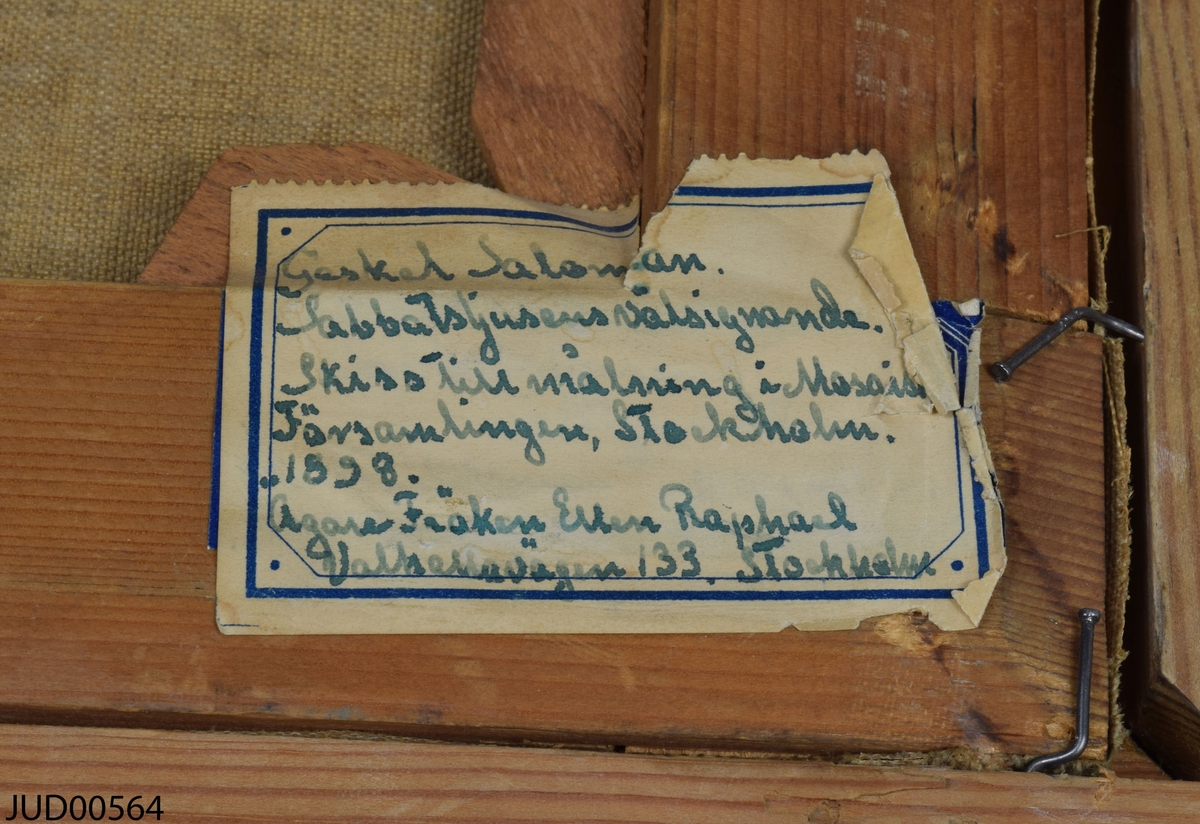 Geskel Saloman.
Sabbatsljusens välsignande.
Skiss till målning i Mosaiska
Församlingen, Stockholm.
1898.
Ägare Fröken Ellen Raphael
Valhallavägen 133, Stockholm.
JUD00564